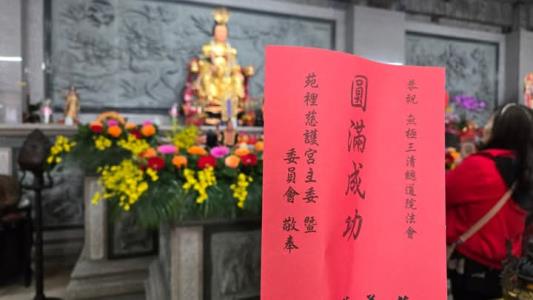 恭祝 無極三清總道院法會
圓滿成功
苑裡慈護宮主委 暨
委員會 敬奉